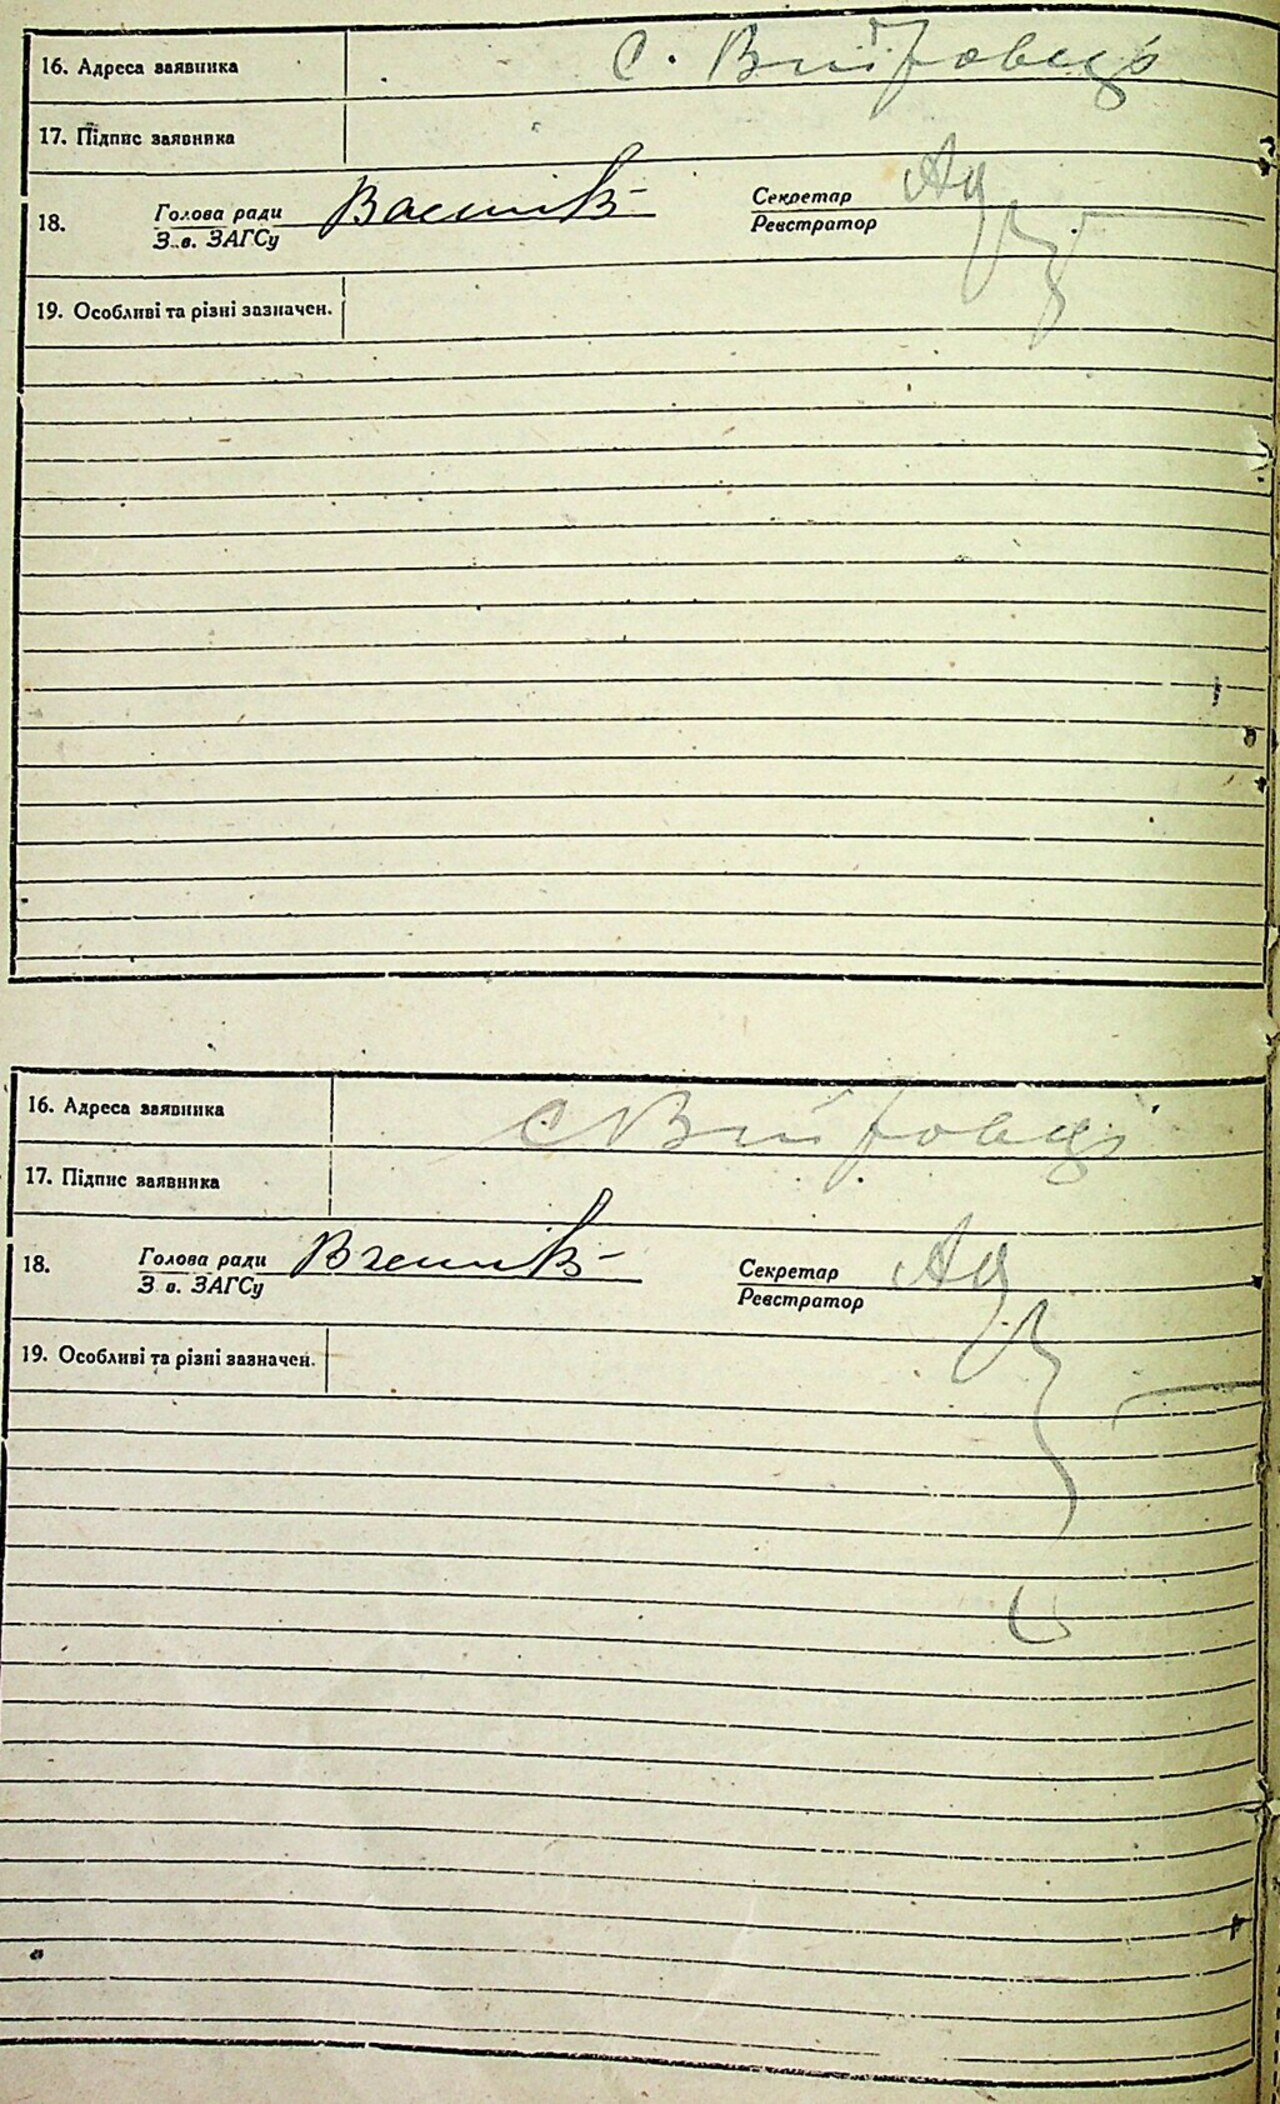 16. Адреса заявника с. Війтовці
17. Підпис заявника
18. Голова ради Секретар
Зав. ЗАГСу Реєстратор
19. Особливі та різні зазначен.
16. Адреса заявника с Війтовці
17. Підпис заявника
18. Голова ради Секретар
Зав. ЗАГСу Реєстратор
19. Особливі та різні зазначен.